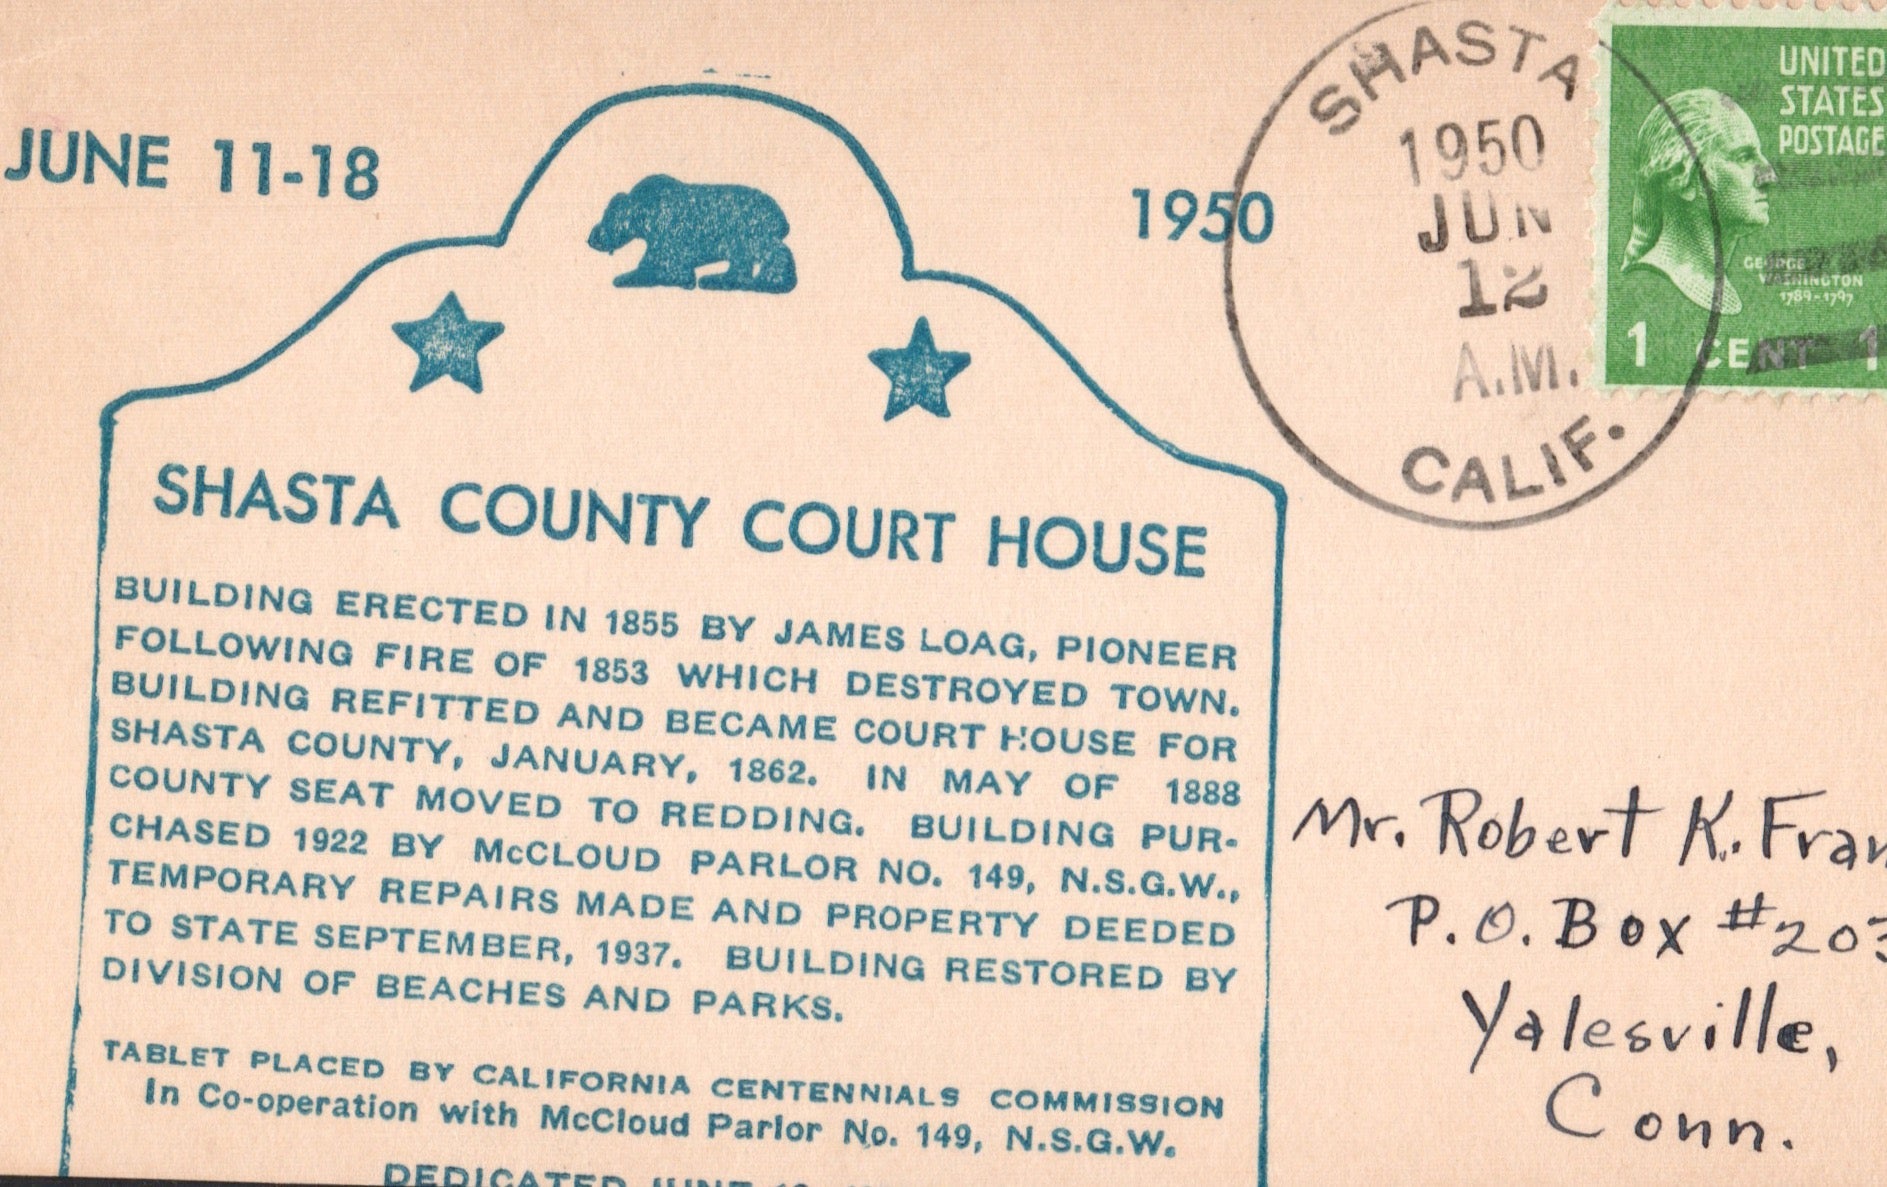 JUNE 11-18
1950
SHASTA
1950
JUN
12
A.M.
CALIF.
UNITED
STATES
POSTAGE
GEORGE
WASHINGTON
1789-1797
1 CENT 1
SHASTA COUNTY COURT HOUSE
BUILDING ERECTED IN 1855 BY JAMES LOAG, PIONEER
FOLLOWING FIRE OF 1853 WHICH DESTROYED TOWN.
BUILDING REFITTED AND BECAME COURT HOUSE FOR
SHASTA COUNTY, JANUARY, 1862. IN MAY OF 1888
COUNTY SEAT MOVED TO REDDING. BUILDING PUR-
CHASED 1922 BY McCLOUD PARLOR NO. 149, N.S.G.W.,
TEMPORARY REPAIRS MADE AND PROPERTY DEEDED
TO STATE SEPTEMBER, 1937. BUILDING RESTORED BY
DIVISION OF BEACHES AND PARKS.
TABLET PLACED BY CALIFORNIA CENTENNIALS COMMISSION
In Co-operation with McCloud Parlor No. 149, N.S.G.W.
DEDICATED JUNE
Mr. Robert K. Fran
P.O. Box #203
Yalesville,
Conn.